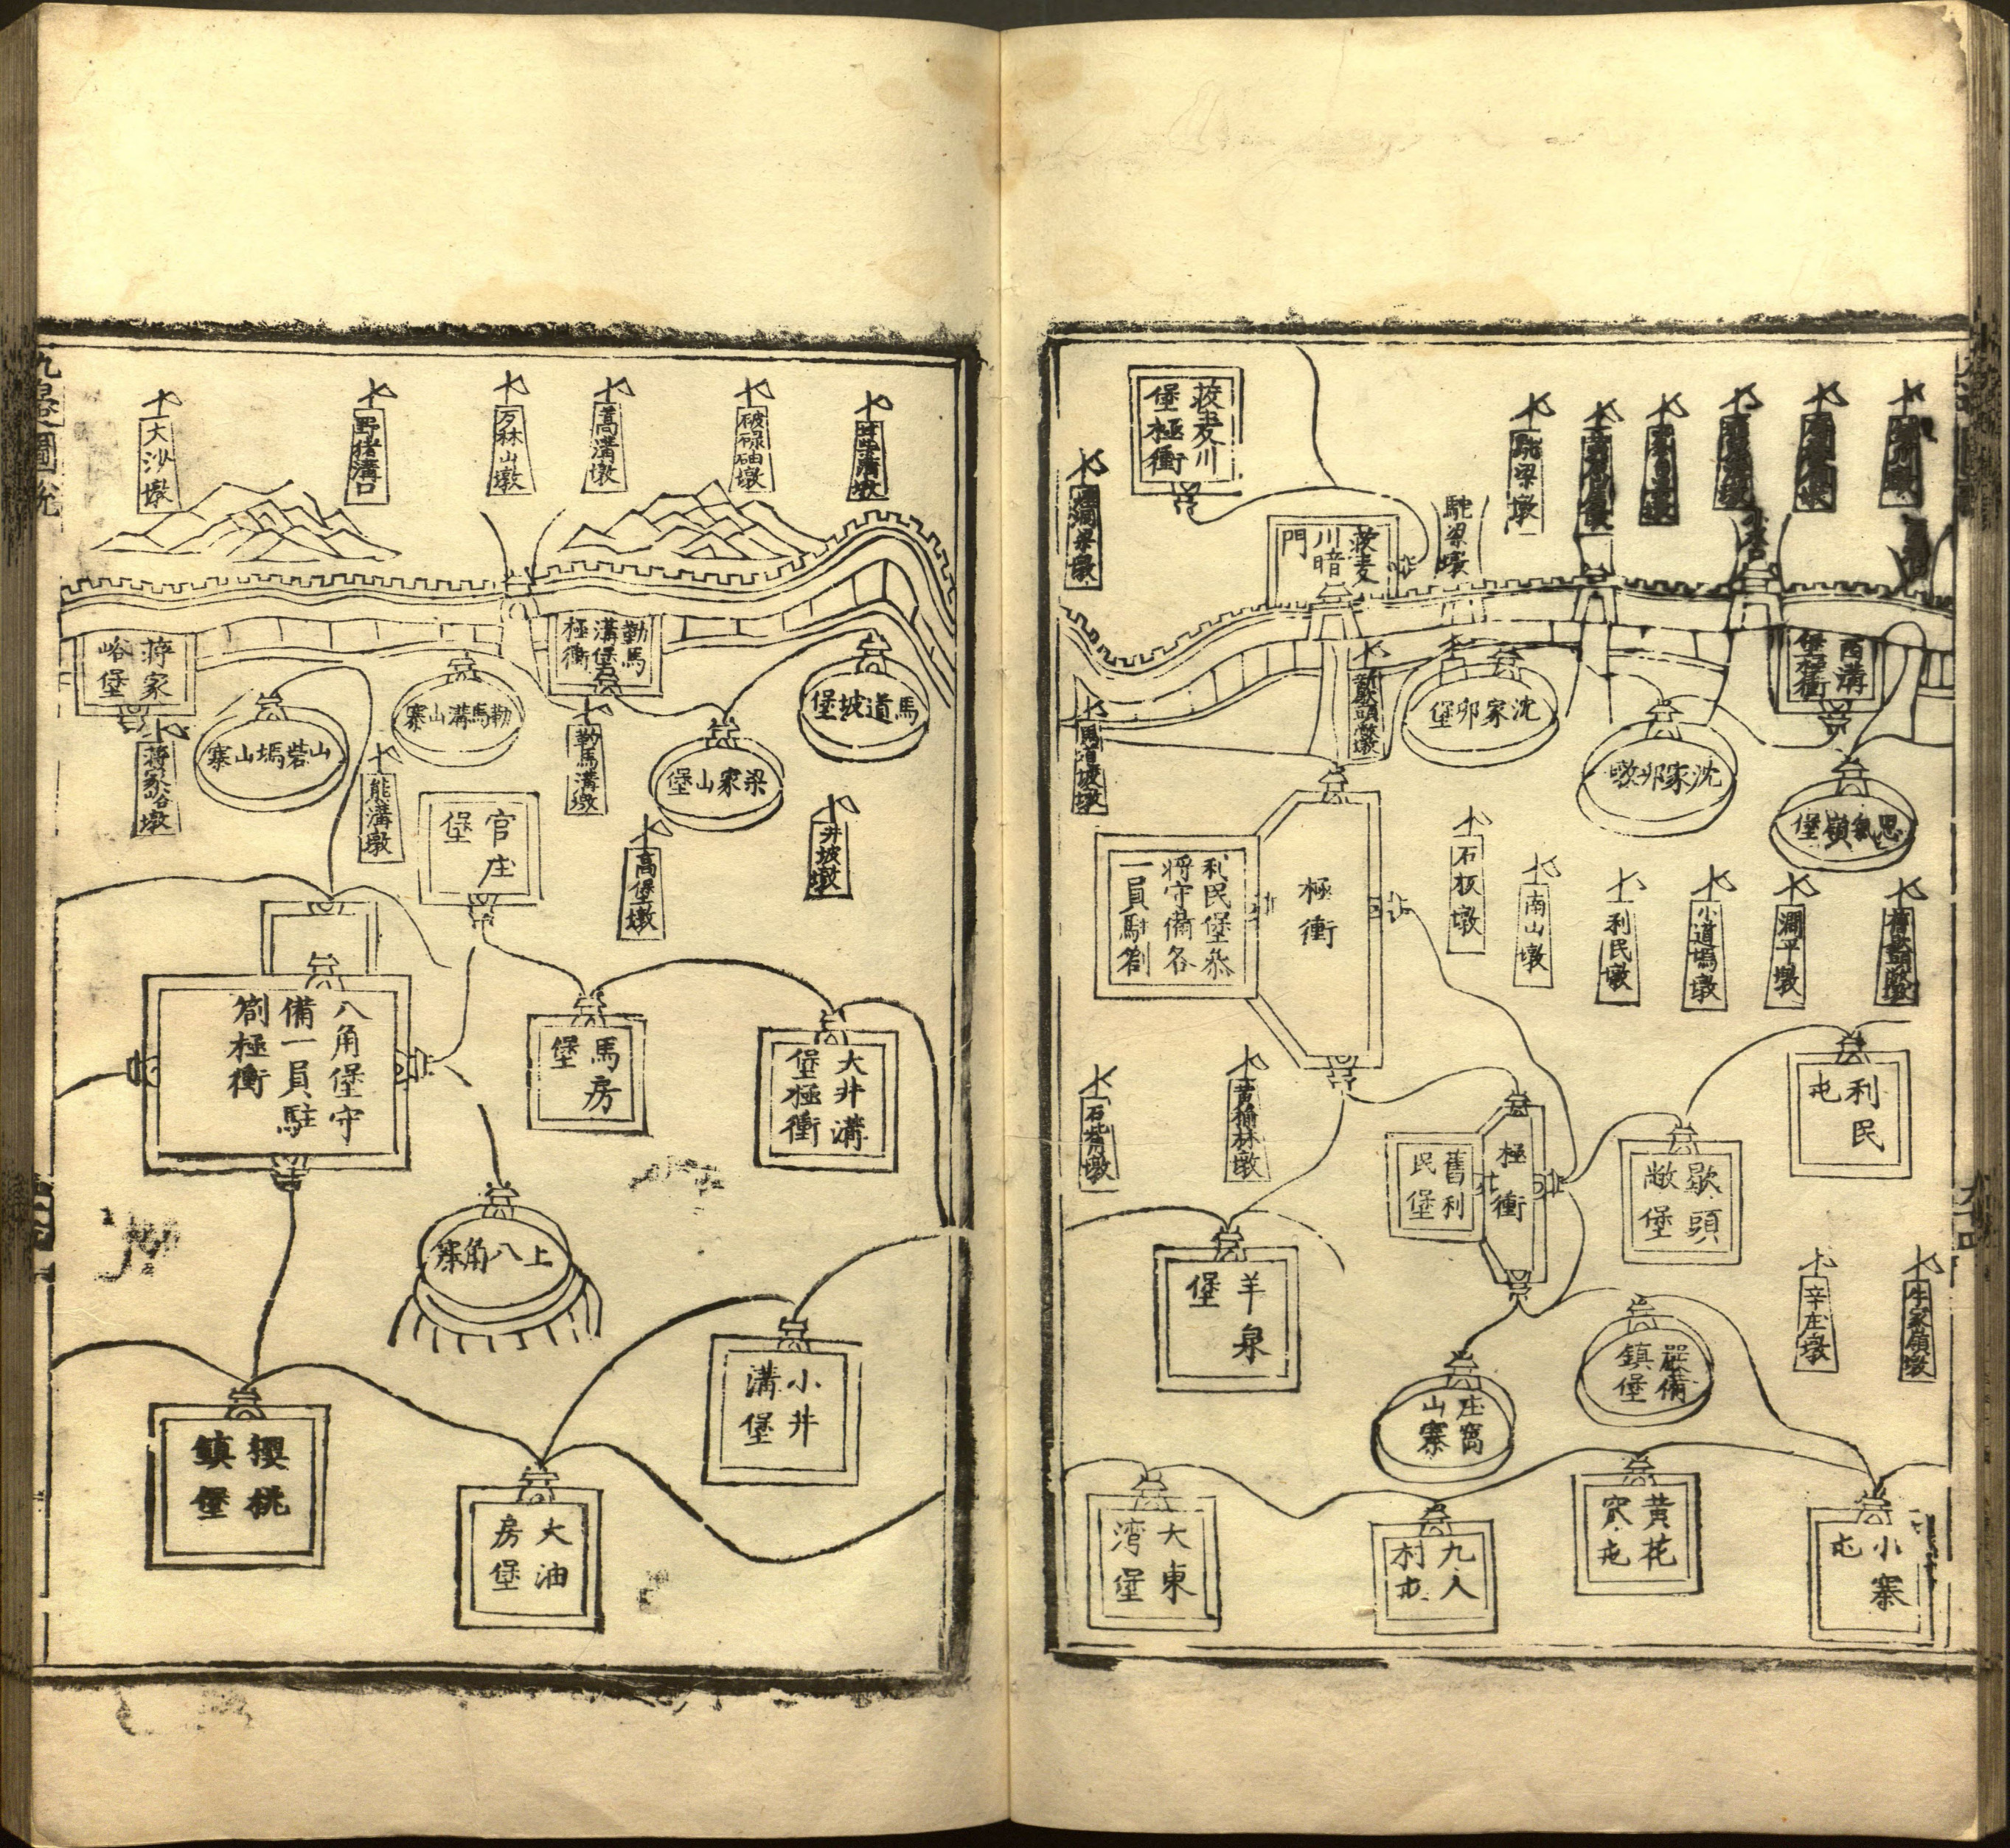 茭麦川
堡極衝
茭麦
川暗
門
駝梁墩
駝梁墩
西溝
堡極衝
沈家邜堡
沈家邜墩
馬道坡墩
極衝
利民堡叅
將守備各
一員駐劄
石板墩
南山墩
利民墩
小道塢墩
澗平墩
利民
屯
歇頭
敝堡
極衝
舊利
民堡
石觜墩
羊泉
堡
辛庄墩
牛家嶺墩
庄窩
山寨
鎮堡
大東
湾堡
九人
村屯
黄花
穴屯
小寨
屯
九邊圖說
大沙墩
野猪溝口
万林山墩
蒿溝墩
破碌碡墩
蒋家
峪堡
勒馬
溝堡
極衝
馬道坡堡
勒馬溝山寨
山嵓塢山寨
梁家山堡
蒋家峪墩
熊溝墩
勒馬溝墩
官庄
堡
高堡墩
井坡墩
八角堡守
備一員駐
劄極衝
馬房
堡
大井溝
堡極衝
上八角寨
小井
溝堡
櫻桃
鎮堡
大油
房堡